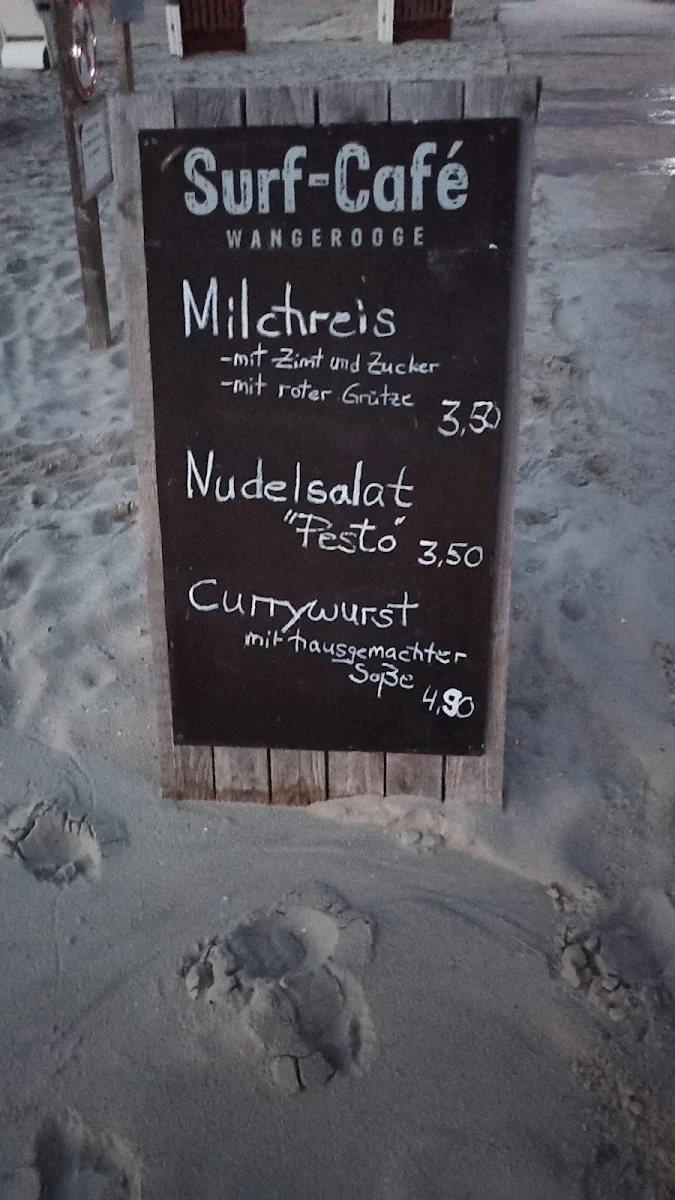 Surf-Café
WANGEROOGE
Milchreis
-mit Zimt und Zucker
-mit roter Grütze
3,50
Nudelsalat
"Pesto" 3,50
Currywurst
mit hausgemachter
Soße
4,90